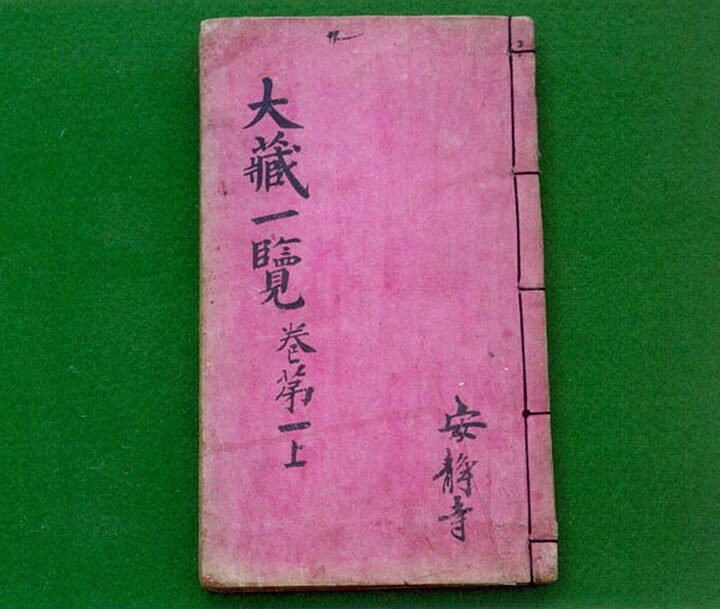 大藏一覽卷第一上
安靜寺